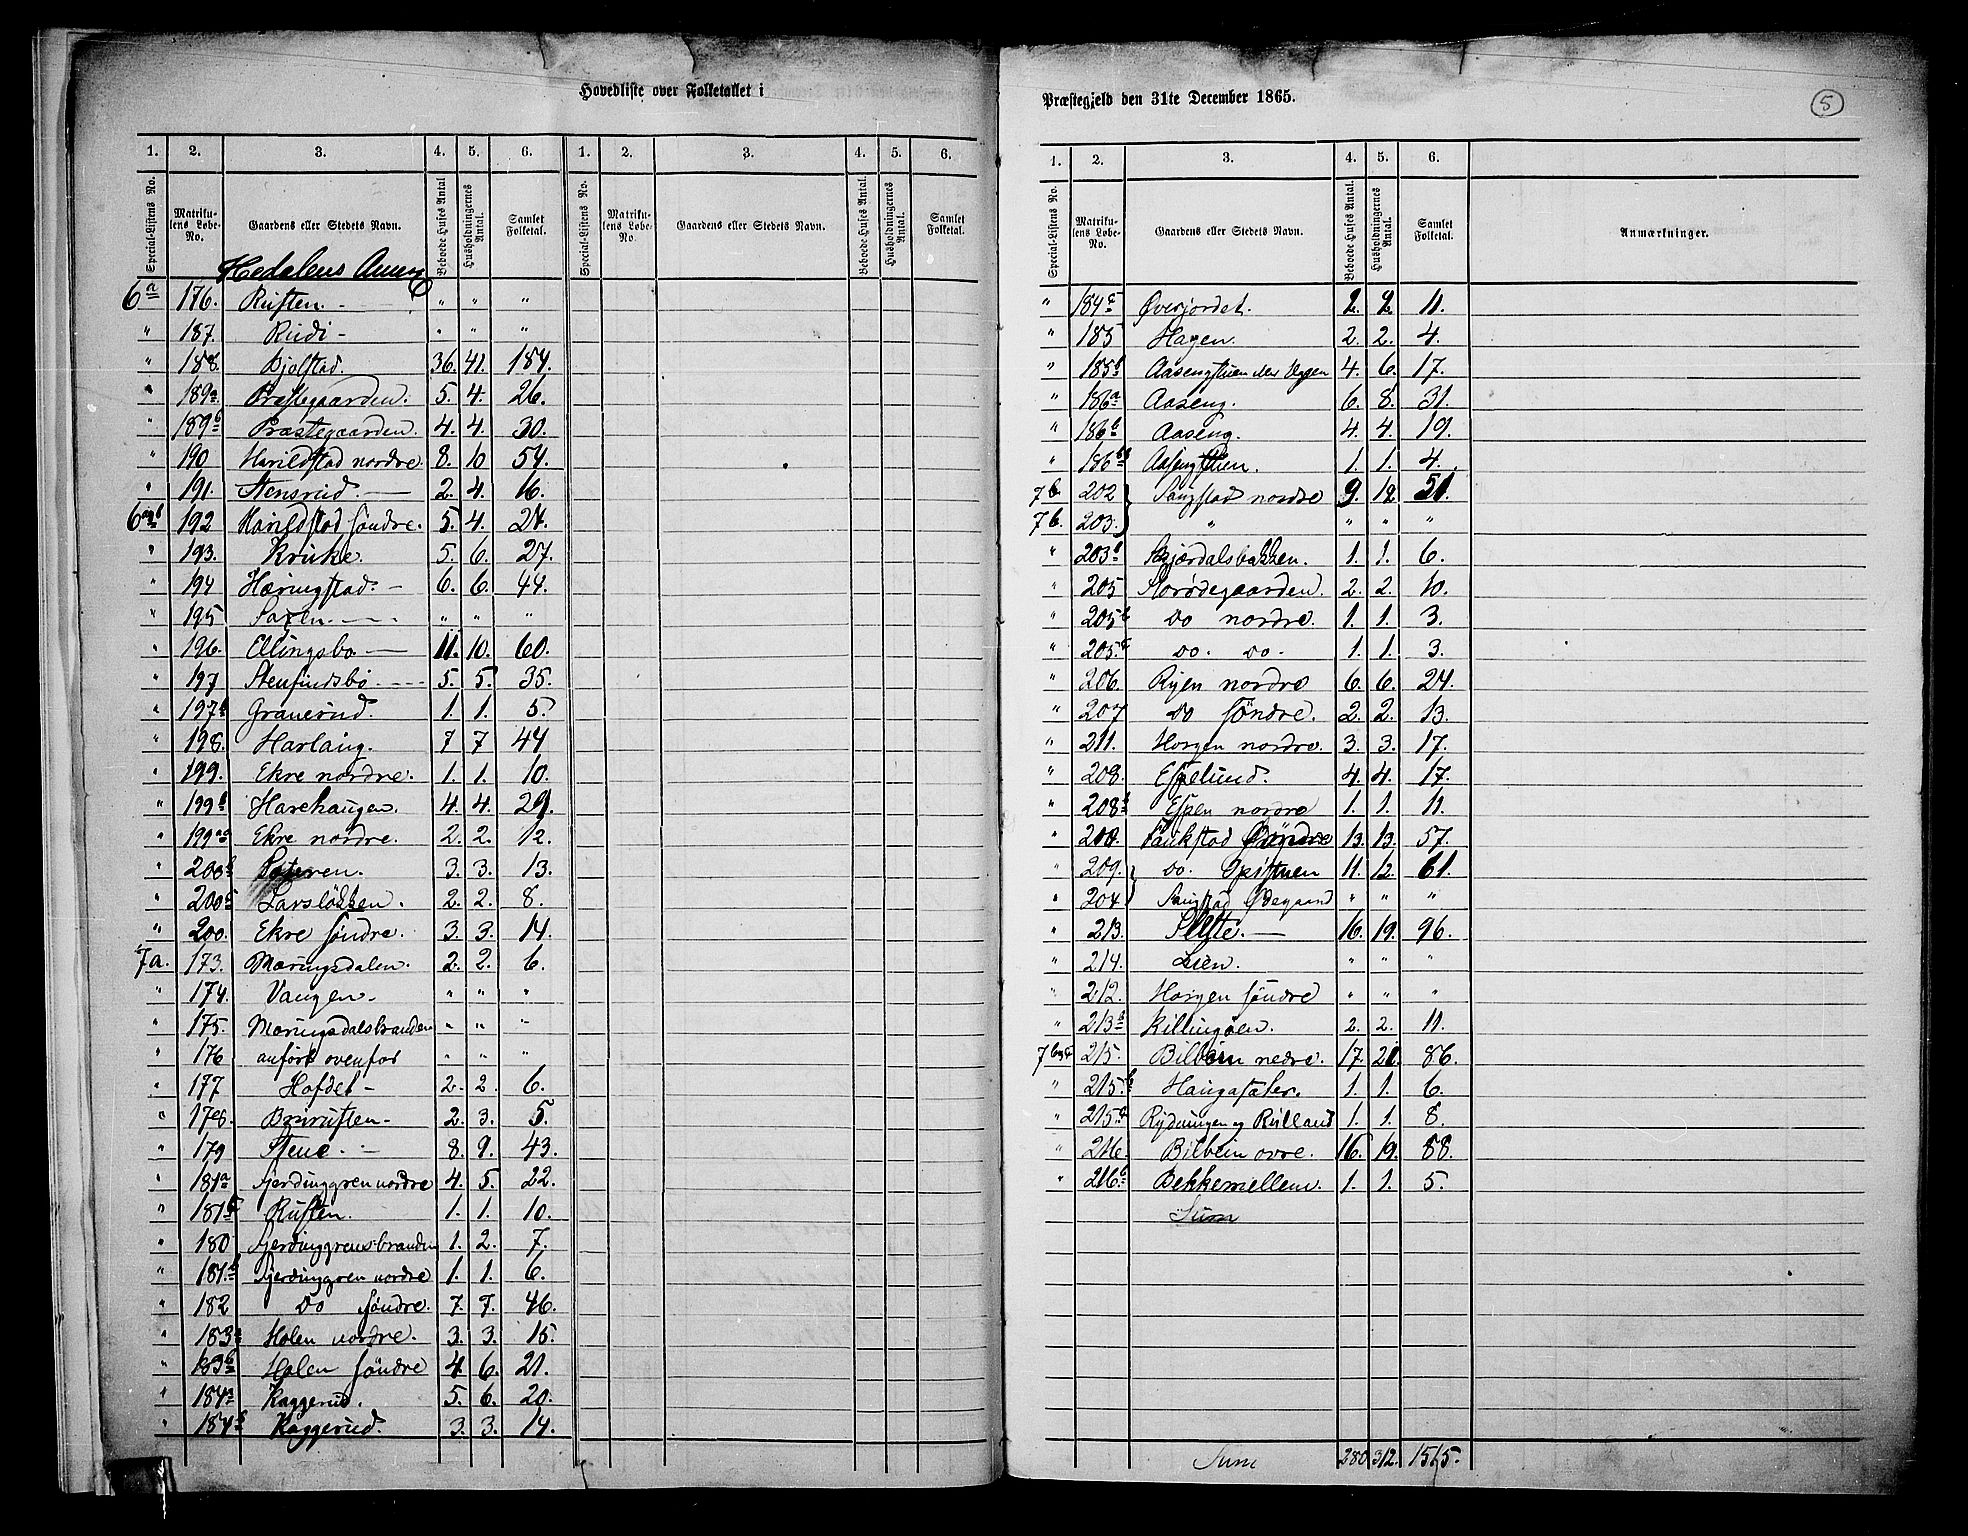 Hovedliste over Folketallet i
1. 2. 3. 4. 5. 6. 1. 2. 3. 4. 5. 6.
Special-Listens No. Matrikulens Løbe-No. Gaardens eller Stedets Navn. Beboede Huses Antal Husholdningernes Antal. Samlet Folketal. Special-Listens No. Matrikulens Løbe-No. Gaardens eller Stedets Navn. Beboede Huses Antal. Husholdningernes Antal. Samlet Folketal.
Hedalens Annex
6a 176. Rusten. - " " "
" 187. Rudi - " " "
" 188. Bjølstad. 36. 41. 184.
" 189a Præstegaarden. 5. 4. 26.
" 189b Præstegaarden. 4. 4. 30.
" 190 Harildstad nordre. 8. 10 54.
" 191. Stensrud. 2. 4. 16.
6a&b 192 Harildstad søndre. 5. 4. 27.
" 193. Kruke. 5. 6. 27.
" 194 Hæringstad. - 6. 6. 44.
" 195 Saxen. " " "
" 196. Ellingsbo - 11. 10. 60.
" 197 Stenfindsbø 5. 5. 35.
" 197b Graverud. 1. 1. 5.
" 198. Harlaug. 7 7 47
" 199. Ekre nordre. 1. 1. 10.
" 199b Harehaugen. 4. 4. 29.
" 199 Ekre nordre. 2. 2. 12.
" 200b 3. 3. 13.
" 200c Larsløkken. 2. 2. 8.
" 200. Ekre søndre. 3. 3. 14.
7a. 173. Mæringsdalen. 2. 2. 6.
" 174. Vangen - " " "
" 175. Mæringsdalsbranden " " "
" 176 anført ovenfor " " "
" 177 Hofdet - 2. 2. 6.
" 178. Bruusten - 2. 3. 5.
" 179 Stene. - 8. 9. 43.
" 181a Fjerdinggren nordre 4. 5. 22.
" 181b Rusten. 1. 1. 10.
" 180 Fjerdinggrensbranden 1. 2. 7.
" 181. Fjerdinggren nordre 1. 1. 6.
" 182 Do søndre. 7. 7. 46.
" 183a Holen nordre. 3. 3. 15.
" 183b Holen søndre 4 6. 21.
" 184a Kaggerud. 5. 6. 20.
" 184b Kaggerud. 3. 3. 14.
Præstegjeld den 31te December 1865.
5
1. 2. 3. 4. 5. 6.
Special-Listens No. Matrikulens Løbe-No. Gaardens eller Stedets Navn. Beboede Huses Antal. Husholdningernes Antal. Samlet Folketal. Anmærkninger.
" 184c Øverjordet. 2. 2. 11.
" 185 Hagen. 2. 2. 4.
" 185b Aasengtuen 4. 6. 17.
" 186a Aaseng. 6. 8. 31.
" 186b Aaseng. 4. 4. 19.
" 186 Aasengtuen. 1. 1. 4.
7b. 202 Sangstad nordre 9. 12. 51.
7b. 203. " " " "
" 203b Skjærdalsbakken. 1. 1. 6.
" 205 Storødegaarden. 2. 2. 10.
" 205b Do nordre. 1. 1. 3.
" 205c Do. Do - 1. 1. 3.
" 206. Ryen nordre 6. 6. 24.
" 207 Do søndre. 2. 2. 13.
" 211. Horgen nordre. 3. 3. 17.
" 208. Espelund. 4. 4. 17.
" 208b Espen nordre 1. 1. 11.
" 210. Faukstad 13. 13. 57.
" 209. Do. Opistuen 11. 12. 61.
" 204 Sangstad Ødegaard " " "
" 213. Slette. - 16. 19. 96.
" 214. Lien. " " "
" 212. Horgen søndre " " "
" 213b Killingøen. 2. 2. 11.
7b&c 215. Bilbein nedre. 17. 21. 86.
" 215b Haugasæter. 1. 1. 6.
" 215c Rydningen og Rulland 1. 1. 8.
" 216. Bilbein øvre. 16. 19. 88.
" 216b Bekkemellem. 1. 1. 5.
Sum
Sum 280 312. 1515.